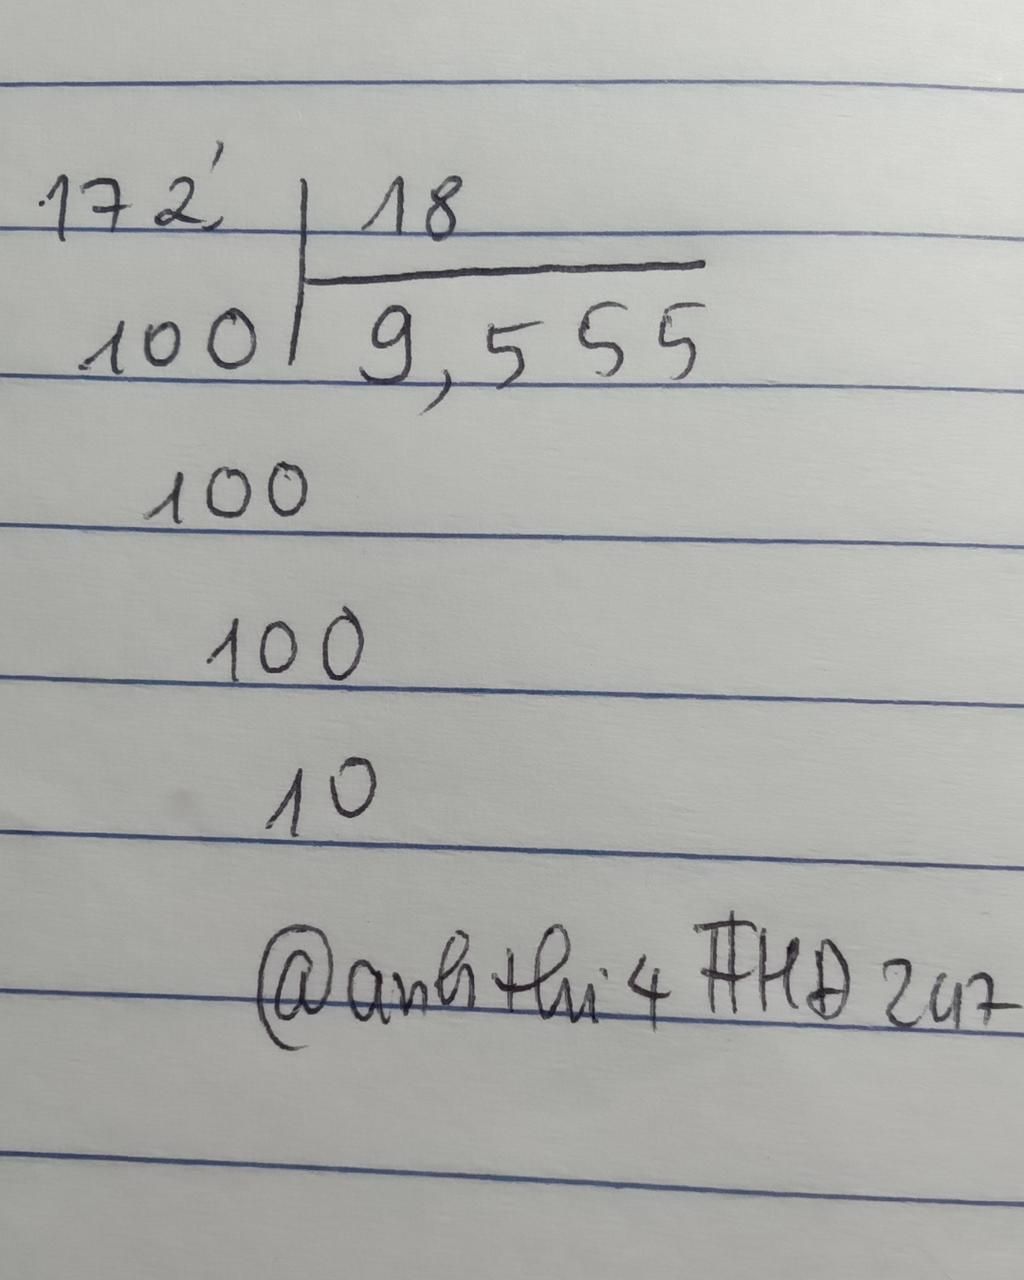 172, 18
100 9,555
100
100
10
@anhthi4 #HD247